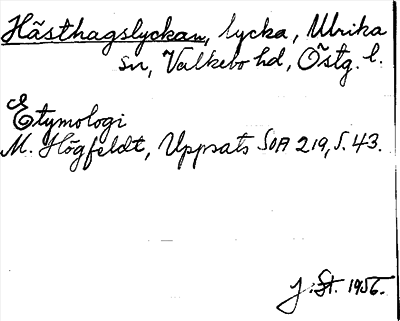 Hästhagslyckan, lycka, Ulrika
sn, Valkebo hd, Östg. l.
Etymologi
M. Högfeldt, Uppsats SOA 219, s. 43.
J:St. 1956.